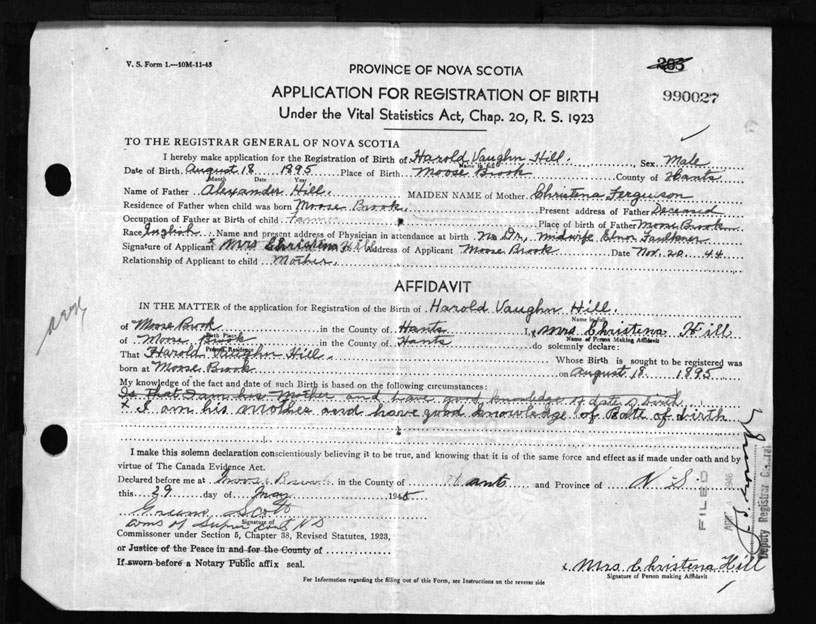 V. S. Form 1.—10M-11-43
203
PROVINCE OF NOVA SCOTIA
990027
APPLICATION FOR REGISTRATION OF BIRTH
Under the Vital Statistics Act, Chap. 20, R. S. 1923
TO THE REGISTRAR GENERAL OF NOVA SCOTIA
I hereby make application for the Registration of Birth of Harold Vaughn Hill. Sex Male
Name in full
Date of Birth August 18 1895 Place of Birth Moose Brook County of Hants
Month Date Year
Name of Father Alexander Hill. MAIDEN NAME of Mother Christena Ferguson
Residence of Father when child was born Moose Brook Present address of Father Deceased
Occupation of Father at Birth of child Farmer Place of birth of Father Moose Brook
Race English Name and present address of Physician in attendance at birth No Dr, midwife Faulkner
Signature of Applicant Mrs Christena Hill Address of Applicant Moose Brook Date Nov. 20. 44
Relationship of Applicant to child Mother.
AFFIDAVIT
IN THE MATTER of the application for Registration of the Birth of Harold Vaughn Hill.
Name in full
of Moose Brook in the County of Hants I, Mrs Christena Hill
Birth Place
Name of Person Making Affidavit
of Moose Brook in the County of Hants do solemnly declare:
Present Residence
That Harold Vaughn Hill. Whose Birth is sought to be registered was
born at Moose Brook on August 18. 1895
My knowledge of the fact and date of such Birth is based on the following circumstances:
Is That I am his Mother and have good knowledge of date of birth
x I am his mother and have good knowledge of Date of birth
I make this solemn declaration conscientiously believing it to be true, and knowing that it is of the same force and effect as if made under oath and by
virtue of The Canada Evidence Act.
Declared before me at Moose Brook in the County of Hants and Province of N.S.
this 29 day of May 1945
Scott
Signature of
Commissioner under Section 5, Chapter 38, Revised Statutes, 1923,
or Justice of the Peace in and for the County of
If sworn before a Notary Public affix seal.
x Mrs. Christena Hill
Signature of Person making Affidavit
For Information regarding the filling out of this Form, see Instructions on the reverse side
FILED
1946
Deputy Registrar General